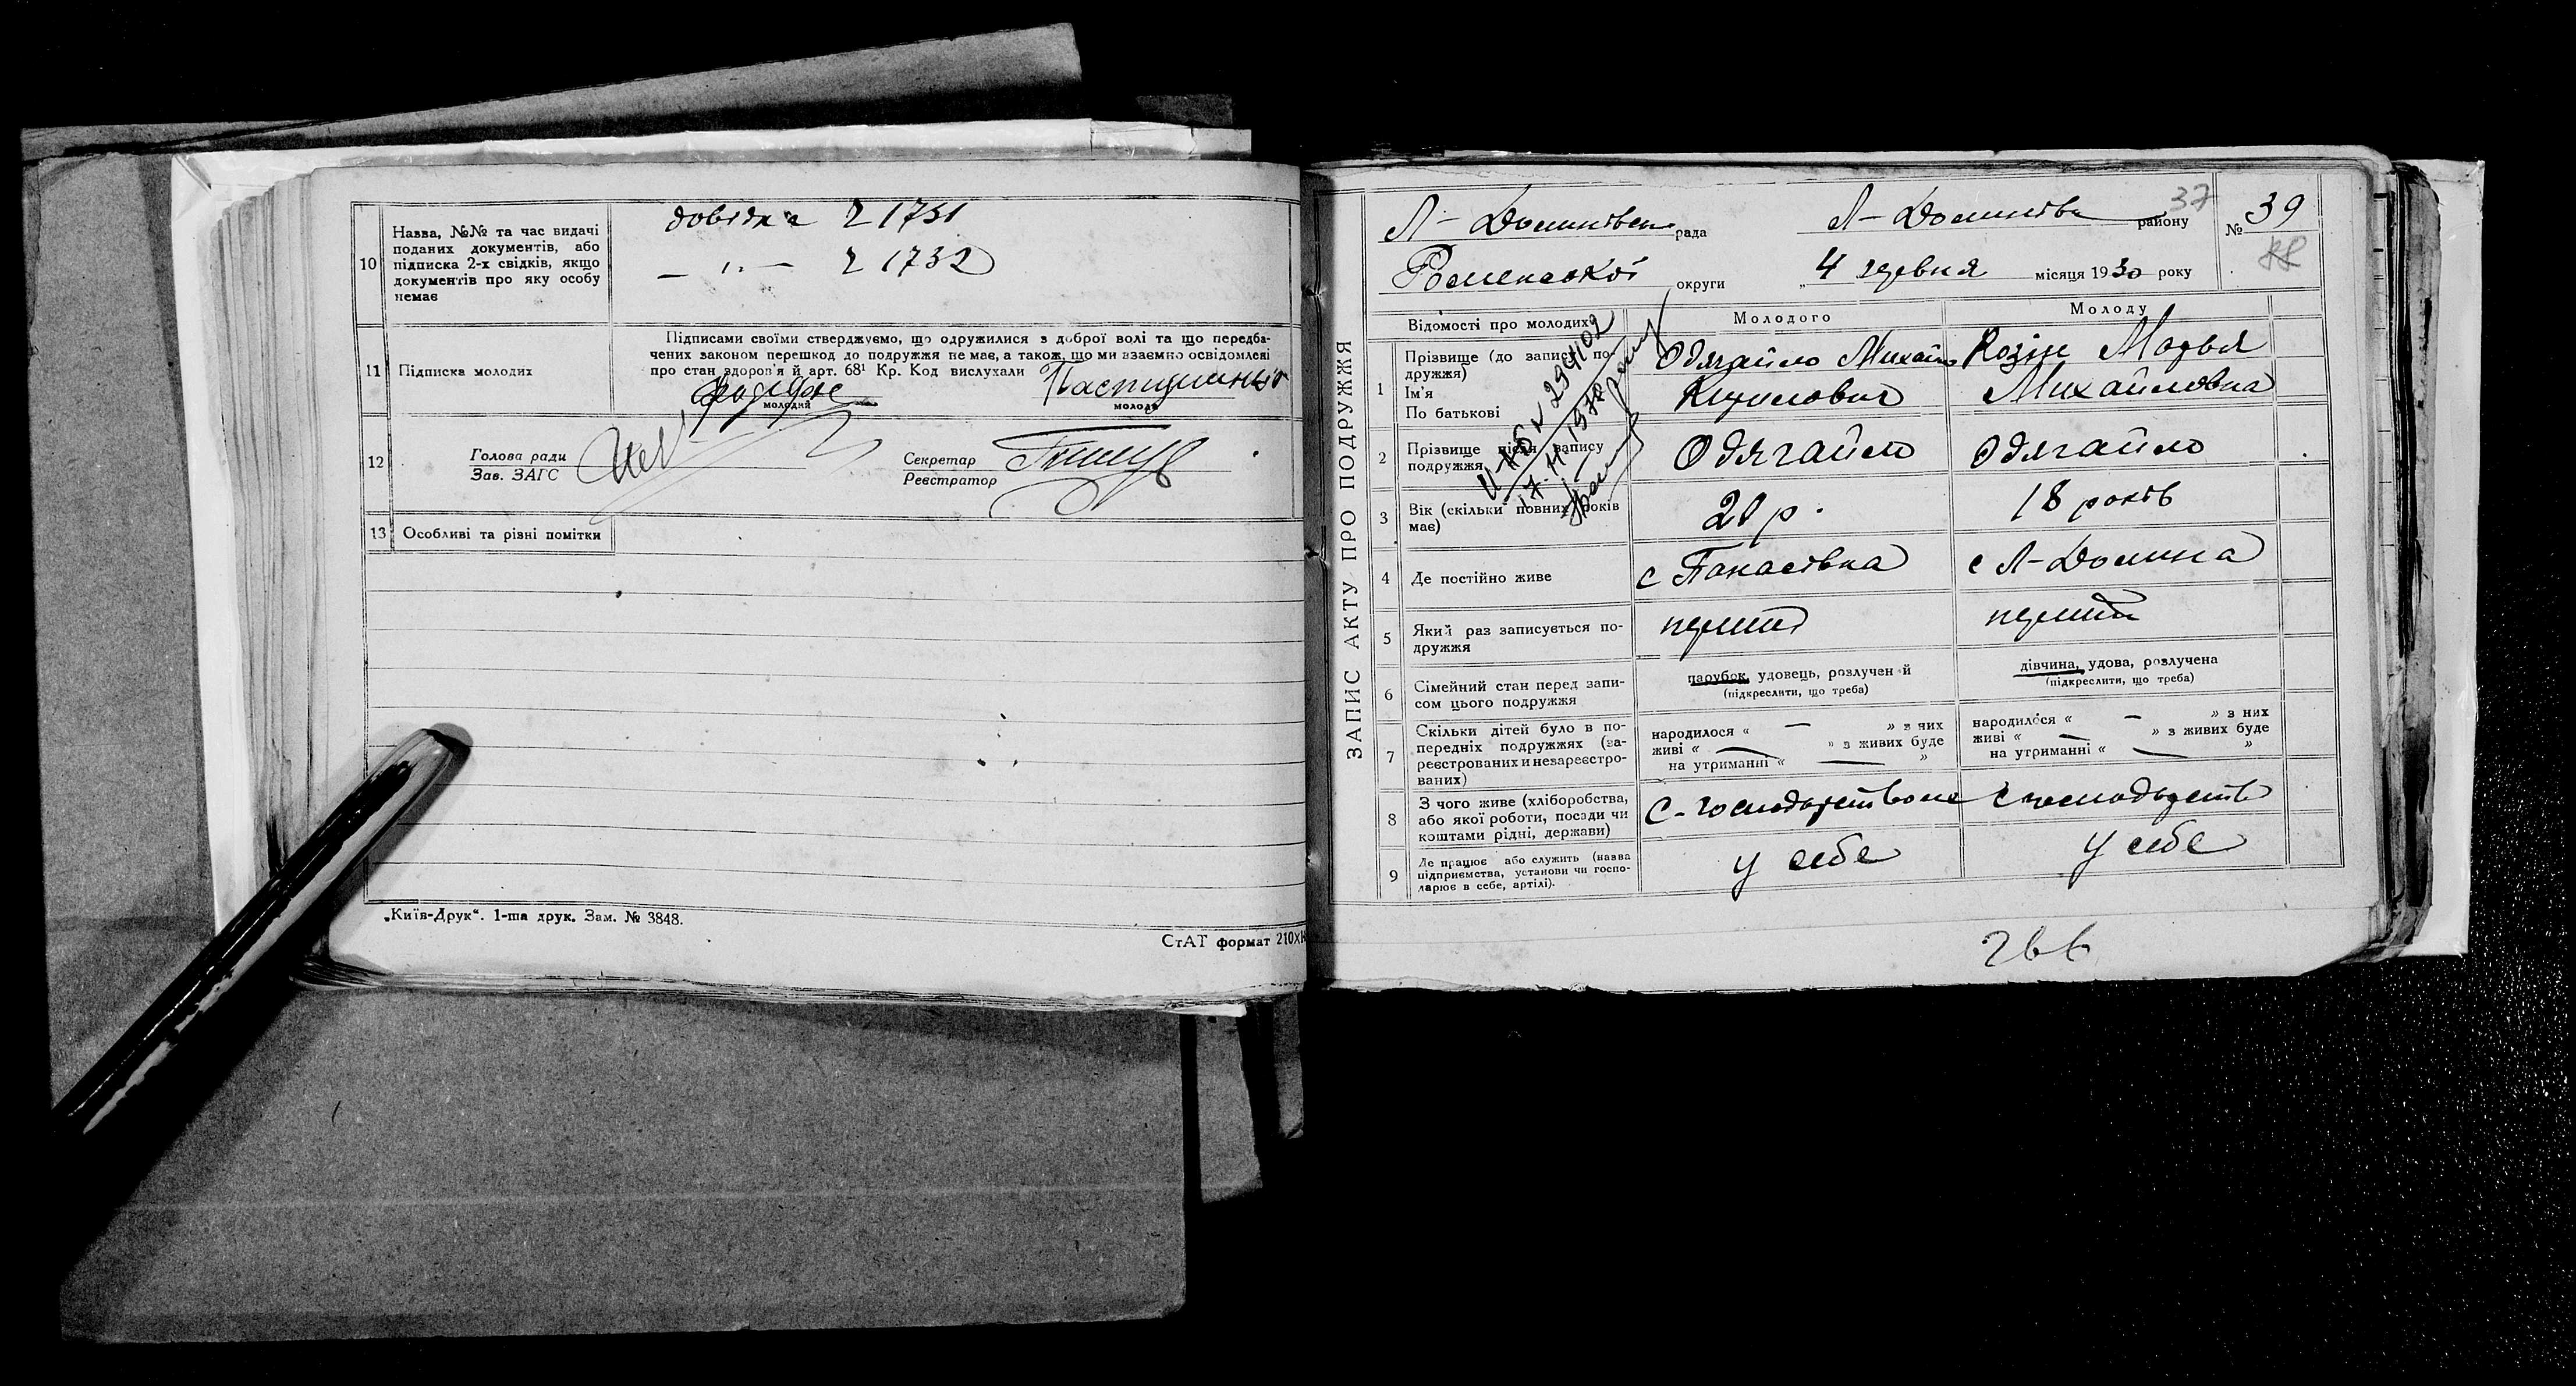 10
Назва, №№ та час видачі
поданих документів, або
підписка 2-х свідків, якщо
документів про яку особу
немає
довідка 2 1731
— „ — 2 1732
11
Підписка молодих
Підписами своїми стверджуємо, що одружилися з доброї волі та що передба-
чених законом перешкод до подружжя немає, а також, що ми взаємно освідомлені
про стан здоров'я й арт. 68¹ Кр. Код вислухали
молодий
молода
12
Голова ради
Зав. ЗАГС
Секретар
Реєстратор
13
Особливі та різні помітки
„Київ-Друк“. 1-ша друк. Зам. № 3848.
СтАТ формат 210х
ЗАПИС АКТУ ПРО ПОДРУЖЖЯ
Л-Долинівська рада
Л-Долинівськ району
37
№ 39
Роменської округи
„4 червня місяця 1930 року
Відомості про молодих
Молодого
Молоду
1
Прізвище (до запису по-
дружжя)
Ім'я
По батькові
Одягайло Михайло
Кирилович
Козік Марья
Михайловна
2
Прізвище після запису
подружжя
Одягайло
Одягайло
3
Вік (скільки повних років
має)
20 р.
18 років
4
Де постійно живе
с Панасівка
с Л-Долина
5
Який раз записується по-
дружжя
перший
перший
6
Сімейний стан перед запи-
сом цього подружжя
парубок, удовець, розлучений
(підкреслити, що треба)
дівчина, удова, розлучена
(підкреслити, що треба)
7
Скільки дітей було в по-
передніх подружжях (за-
реєстрованих и незареєстро-
ваних)
народилося « — » з них
живі « — » з живих буде
на утриманні « — »
народилося « — » з них
живі « — » з живих буде
на утриманні « — »
8
З чого живе (хліборобства,
або якої роботи, посади чи
коштами рідні, держави)
С-господарством
С господарств
9
Де працює або служить (назва
підприємства, установи чи госпо-
дарює в себе, артілі).
у себе
у себе
17-11-1978